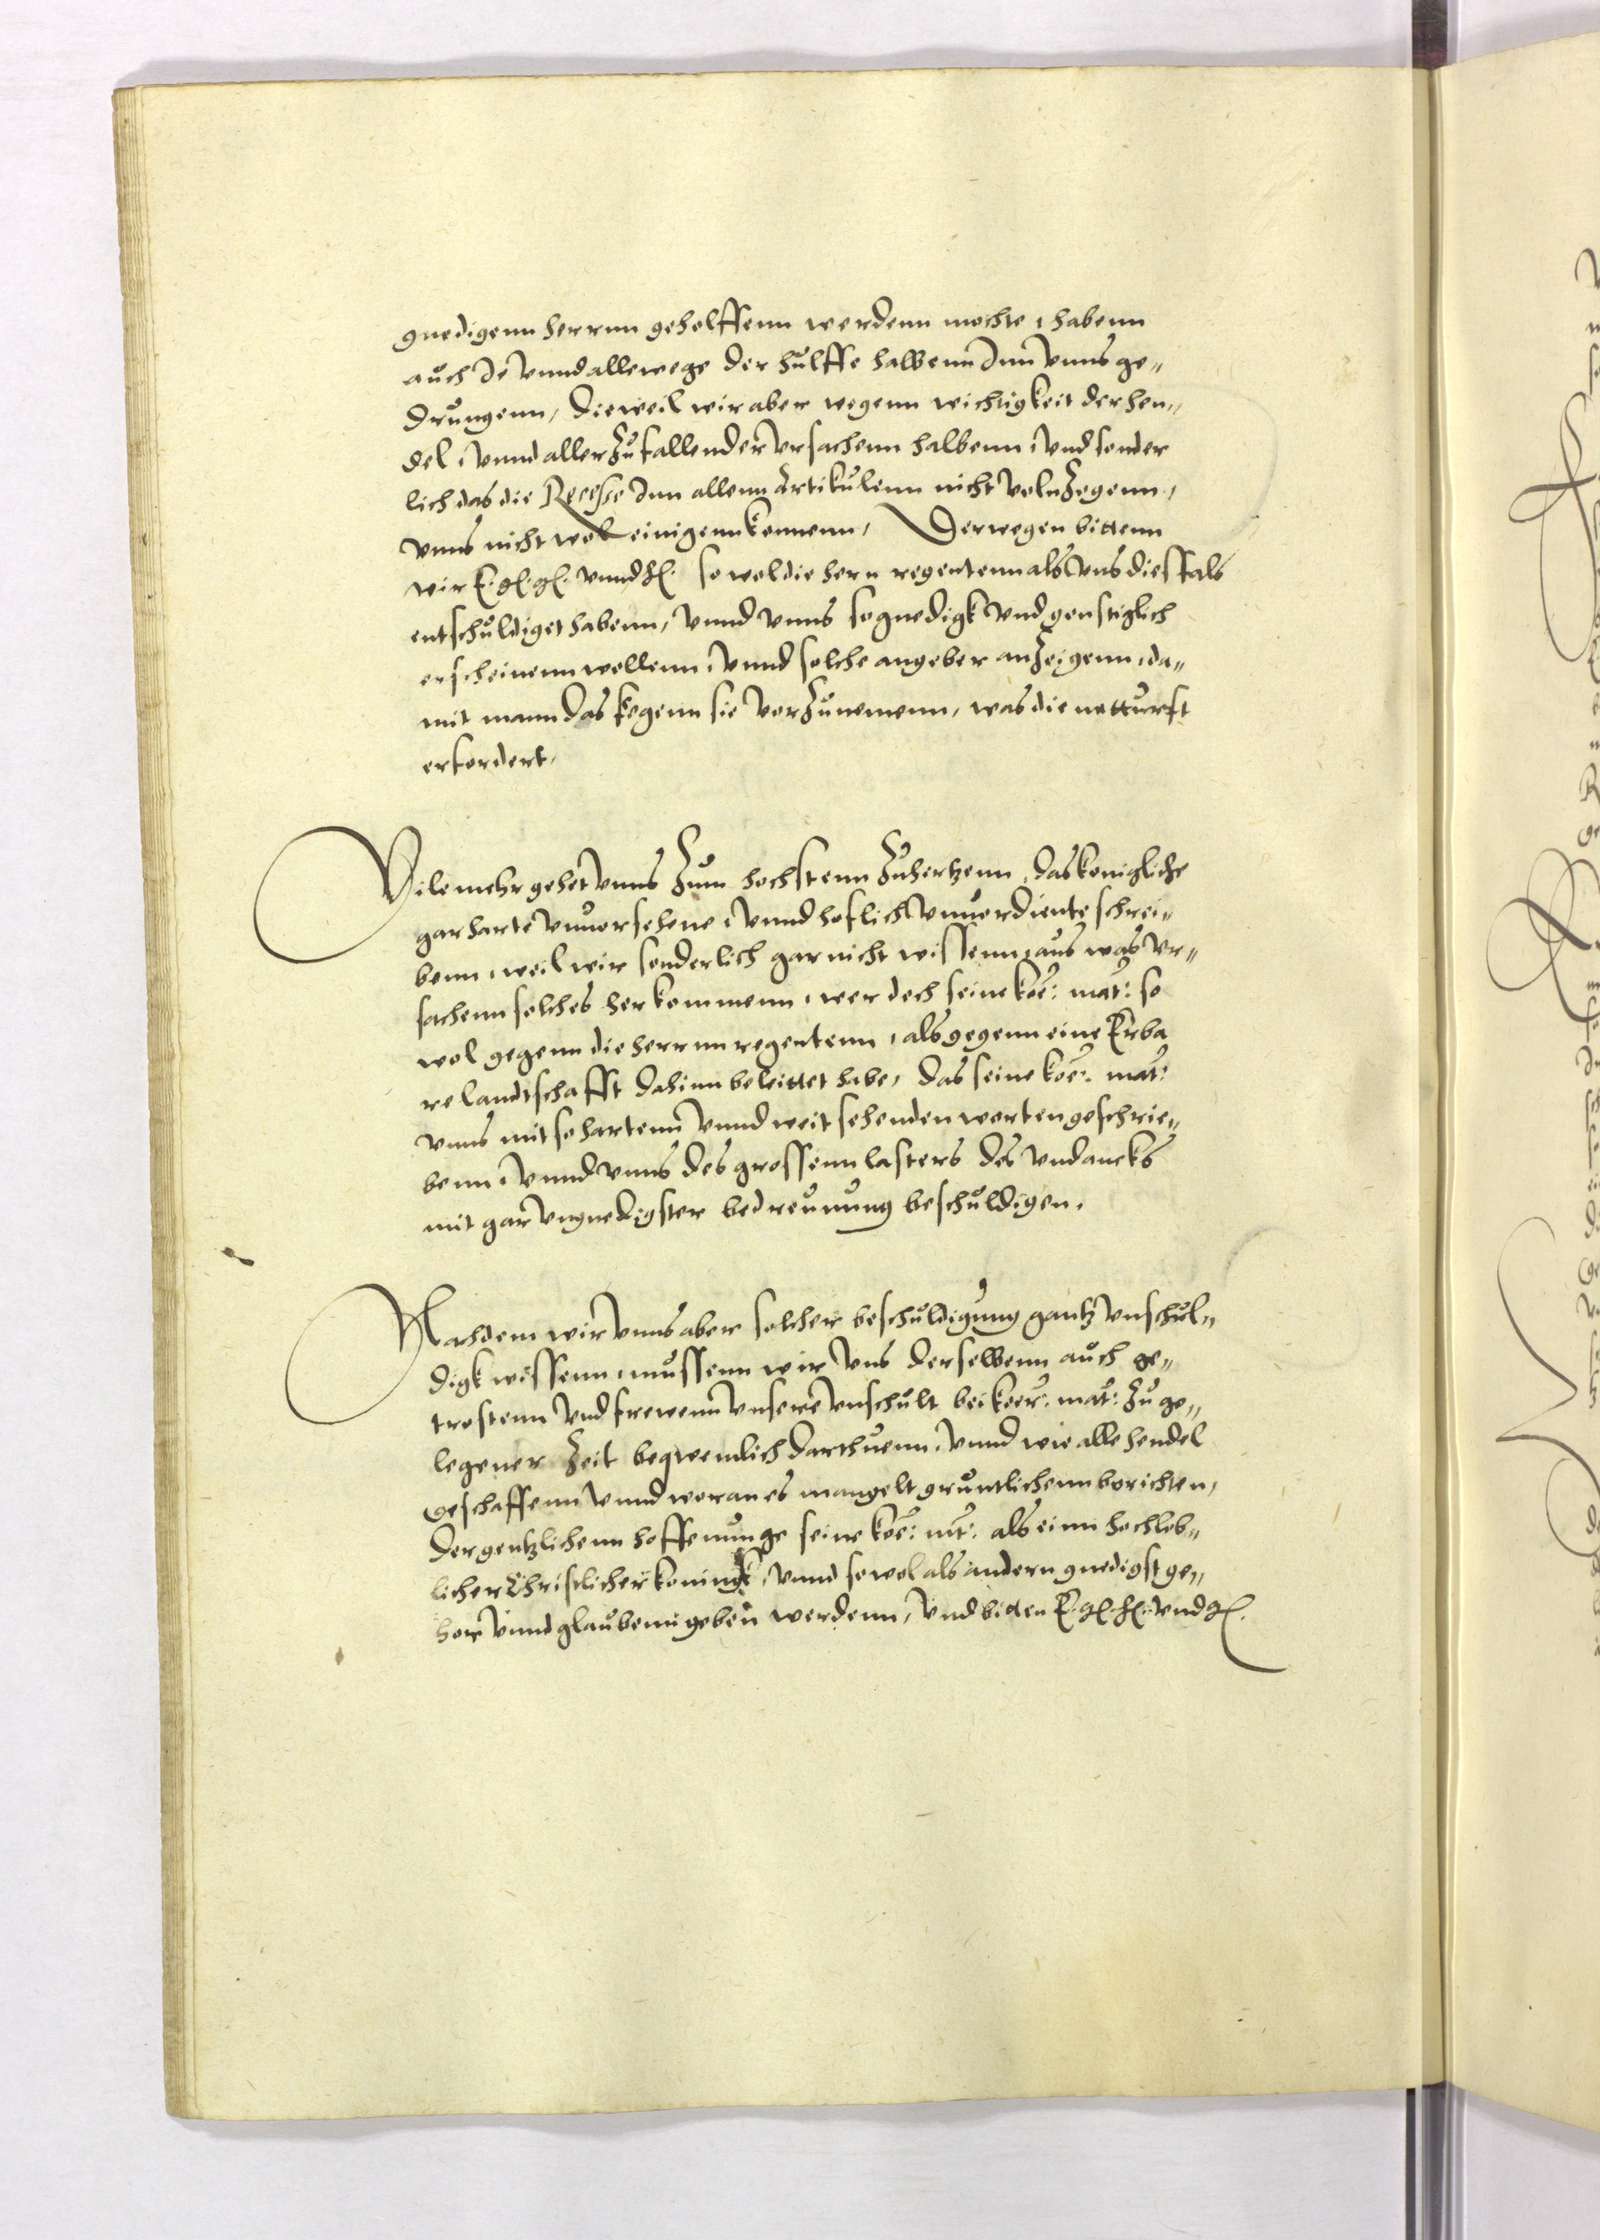 gnedigenn herrnn geholffenn werdenn mochte, habenn
auch Je unnd allewege der hulffe halbenn Inn unns ge„
drungenn, Dieweil wir aber wegenn wichtigkeit der hen„
del, unnd aller zufallender ursachenn halbenn, und sonder
lich das die Recesse Inn allenn Artikulenn nicht voln zogenn,
unns nicht wol einigenn konnenn, Derwegen bittenn
wir E. gl. gl. unnd hl. so wol die hern regentenn als uns diesfals
entschuldiget habenn, unnd unns so gnedigk und gonstiglich
erscheinenn wollenn, unnd solche angeber anzeigenn, da„
mit mann das kegenn sie vorzunemenn, was die notturft
erfordert,
Vilemehr gehet unns zum hochstenn zu hertzenn, das konigliche
gar harte unvorsehene, unnd hoflich unvordiente schrei„
benn, weil wir sonderlich gar nicht wissenn, aus was ur„
sachenn solches herkommenn, wer doch seine koe: mat: so
wol gegenn die herrnn regentenn, als gegenn eine Erba
re landtschafft dahinn beleittet habe, das seine koe: mat:
unns mit so hartenn unnd weit sehenden worten geschrie„
benn, unnd unns des grossenn lasters des undancks
mit gar ungnedigster bedreuung beschuldigen.
Nachdem wir unns aber solcher beschuldigung gantz unschul„
digk wissenn, mussenn wir uns derselbenn auch ge„
trostenn und frewenn unsere unschult bei koer: mat: zu ge„
legener zeit beqwemlich darthuenn, unnd wie alle hendel
geschaffenn unnd woran es mangelt gruntlichenn berichten,
der gentzlichenn hoffenunge seine koe: mt: als einn hochlob„
licher Christlicher koningk, unnd so wol als andern gnedigst ge„
hor unnd glaubenn geben werdenn, und bitten E. gl. hl. und gl.